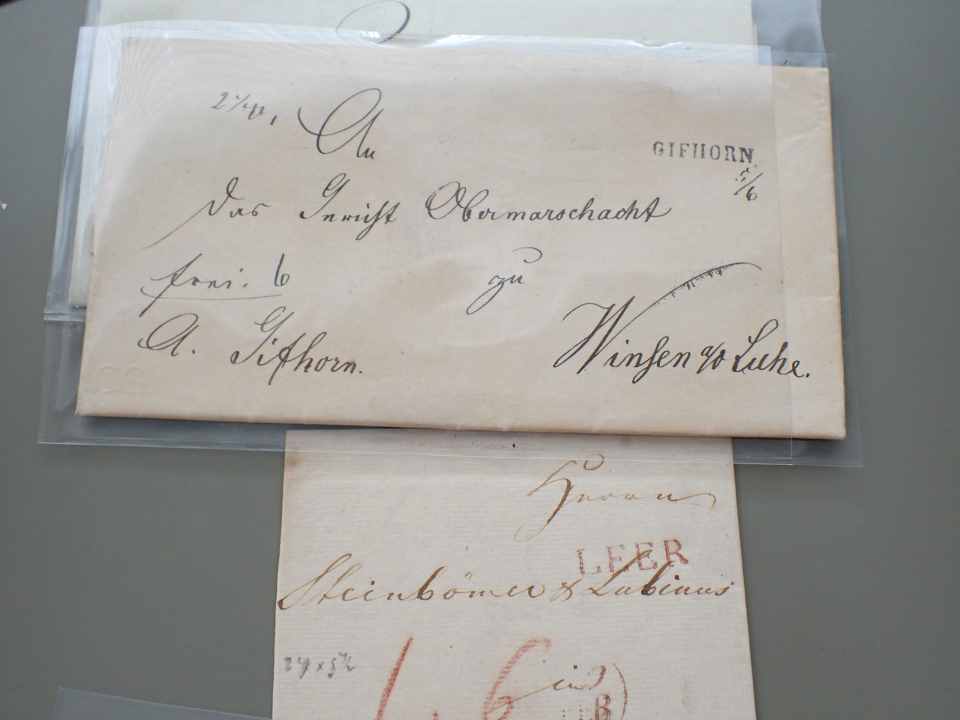 An
GIFHORN
5/6
Das Gericht Obermarschacht
frei. 6
zu
A. Gifhorn.
Winsen a/d Luhe.
Herrn
LEER
Steinbömer & Lubinus
in